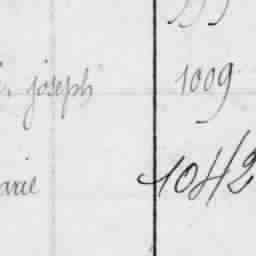 joseph 1009
arie 1042